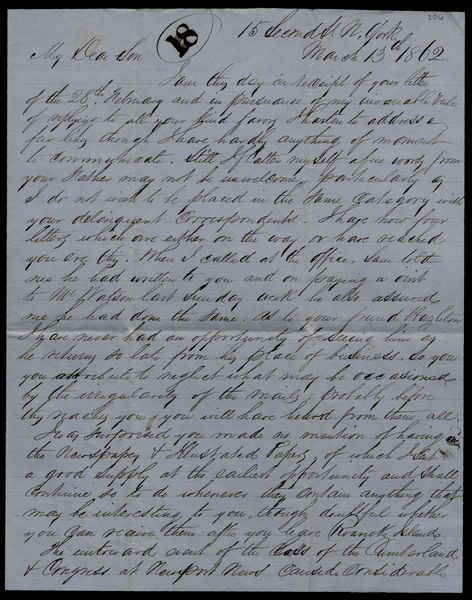 206
18
15 Second St N. York
March 13th 1862.
My Dear Son
I am this day in receipt of your letter
of the 28th February and in pursuance of my invariable rule
of replying to all your kind favors I hasten to address a
few lines though I have hardly anything of moment
to communicate. Still I flatter myself a few words from
your Father may not be unwelcome, particularly as
I do not wish to be placed in the same category with
your delinquent Correspondents. I have now four
letters which are either on the way or have reached
you ere this. When I called at the office, Sam told
me he had written to you and on paying a visit
to Mr Watson last Sunday week he also assured
me he had done the same. As to your friend Hazelton
I have never had an opportunity of seeing him as
he returns so late from his place of business. So you
you attribute to neglect what may be occasioned
by the irregularity of the mails; probably before
this reaches you, you will have heard from them all.
I was surprised you made no mention of having
the Newspapers & Illustrated Papers, of which I sent
a good supply at the earliest opportunity and shall
continue so to do whenever they contain anything that
may be interesting to you, though doubtful whether
you can receive them after you leave Roanoke Island.
The untoward event of the loss of the Cumberland
& Congress at Newport News caused considerable